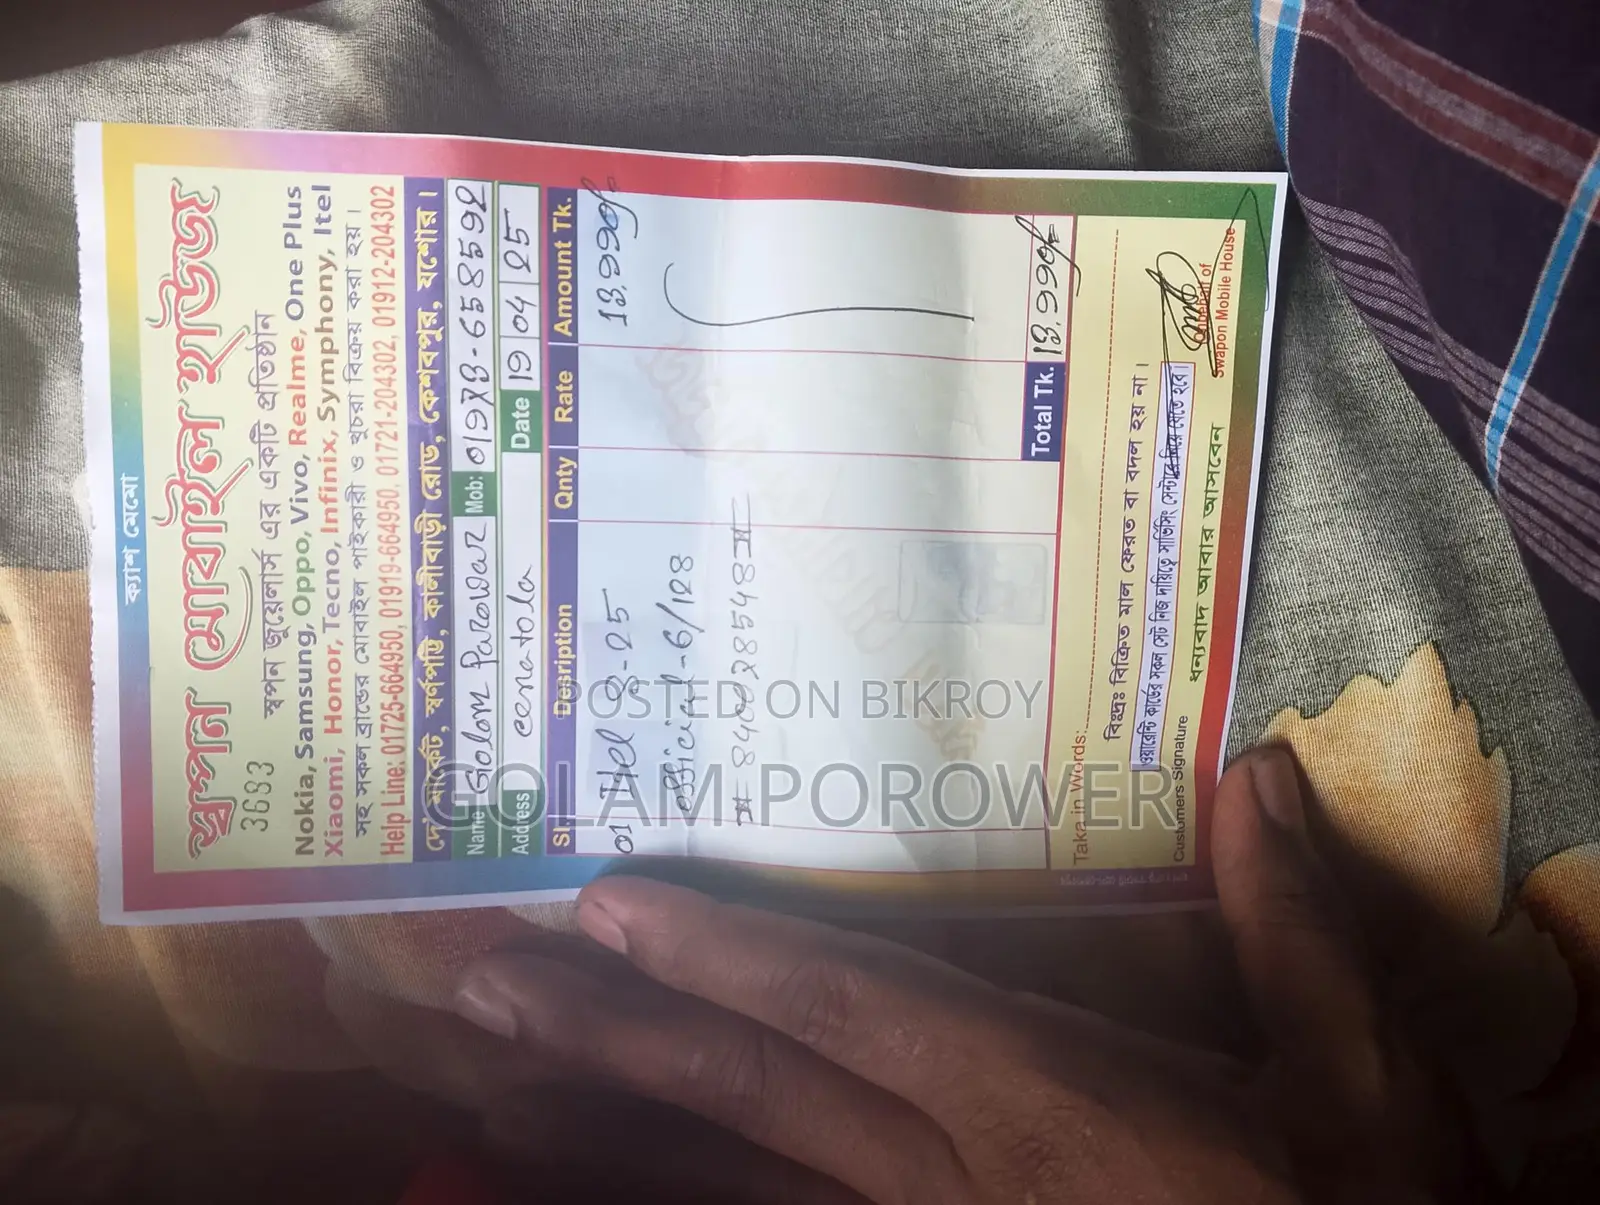 ক্যাশ মেমো
স্বপন মোবাইল হাউজ
3693
স্বপন জুয়েলার্স এর একটি প্রতিষ্ঠান
Nokia, Samsung, Oppo, Vivo, Realme, One Plus
Xiaomi, Honor, Tecno, Infinix, Symphony, Itel
সহ সকল ব্রান্ডের মোবাইল পাইকারী ও খুচরা বিক্রয় করা হয়।
Help Line: 01725-664950, 01919-664950, 01721-204302, 01912-204302
মার্কেট, স্বর্ণপট্টি, কালীবাড়ী রোড, কেশবপুর, যশোর।
Name Golam Parowar Mob:
Address Date 19 04 25
Sl. Desription Qnty Rate Amount Tk.
01 Itel S-25 13,990/-
official-6/128
Total Tk. 13,990/-
Taka in Words:
বিঃদ্রঃ বিক্রিত মাল ফেরত বা বদল হয় না।
ওয়ারেন্টি কার্ডের সকল সেট নিজ দায়িত্বে সার্ভিসিং সেন্টারে নিয়ে যেতে হবে।
Customers Signature
ধন্যবাদ আবার আসবেন
Onbehalf of
Swapon Mobile House
POSTED ON BIKROY
GOLAM POROWER